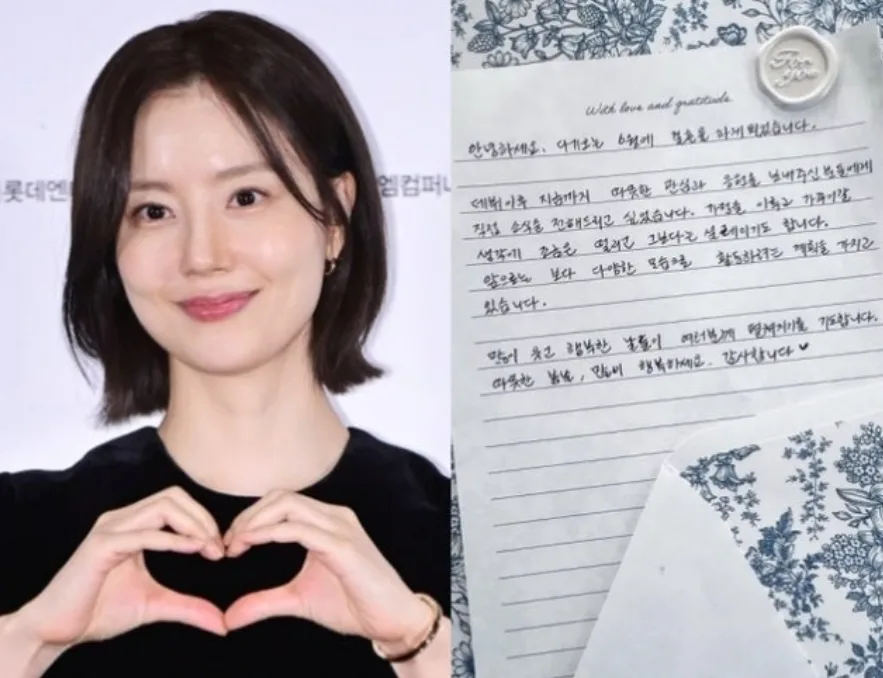 롯데엔
엠컴퍼니
For
you
With love and gratitude
안녕하세요. 다가오는 6월에 결혼을 하게 되었습니다.
데뷔이후 지금까지 따뜻한 관심과 응원을 보내주신 분들에게
직접 소식을 전해드리고 싶었습니다. 가정을 이루고 가꾸어갈
생각에 조금은 떨리고 그보다는 설레이기도 합니다.
앞으로는 보다 다양한 모습으로 활동하려는 계획을 가지고
있습니다.
많이 웃고 행복한 날들이 여러분께 펼쳐지기를 기도합니다.
따뜻한 봄날, 많이 행복하세요. 감사합니다♥